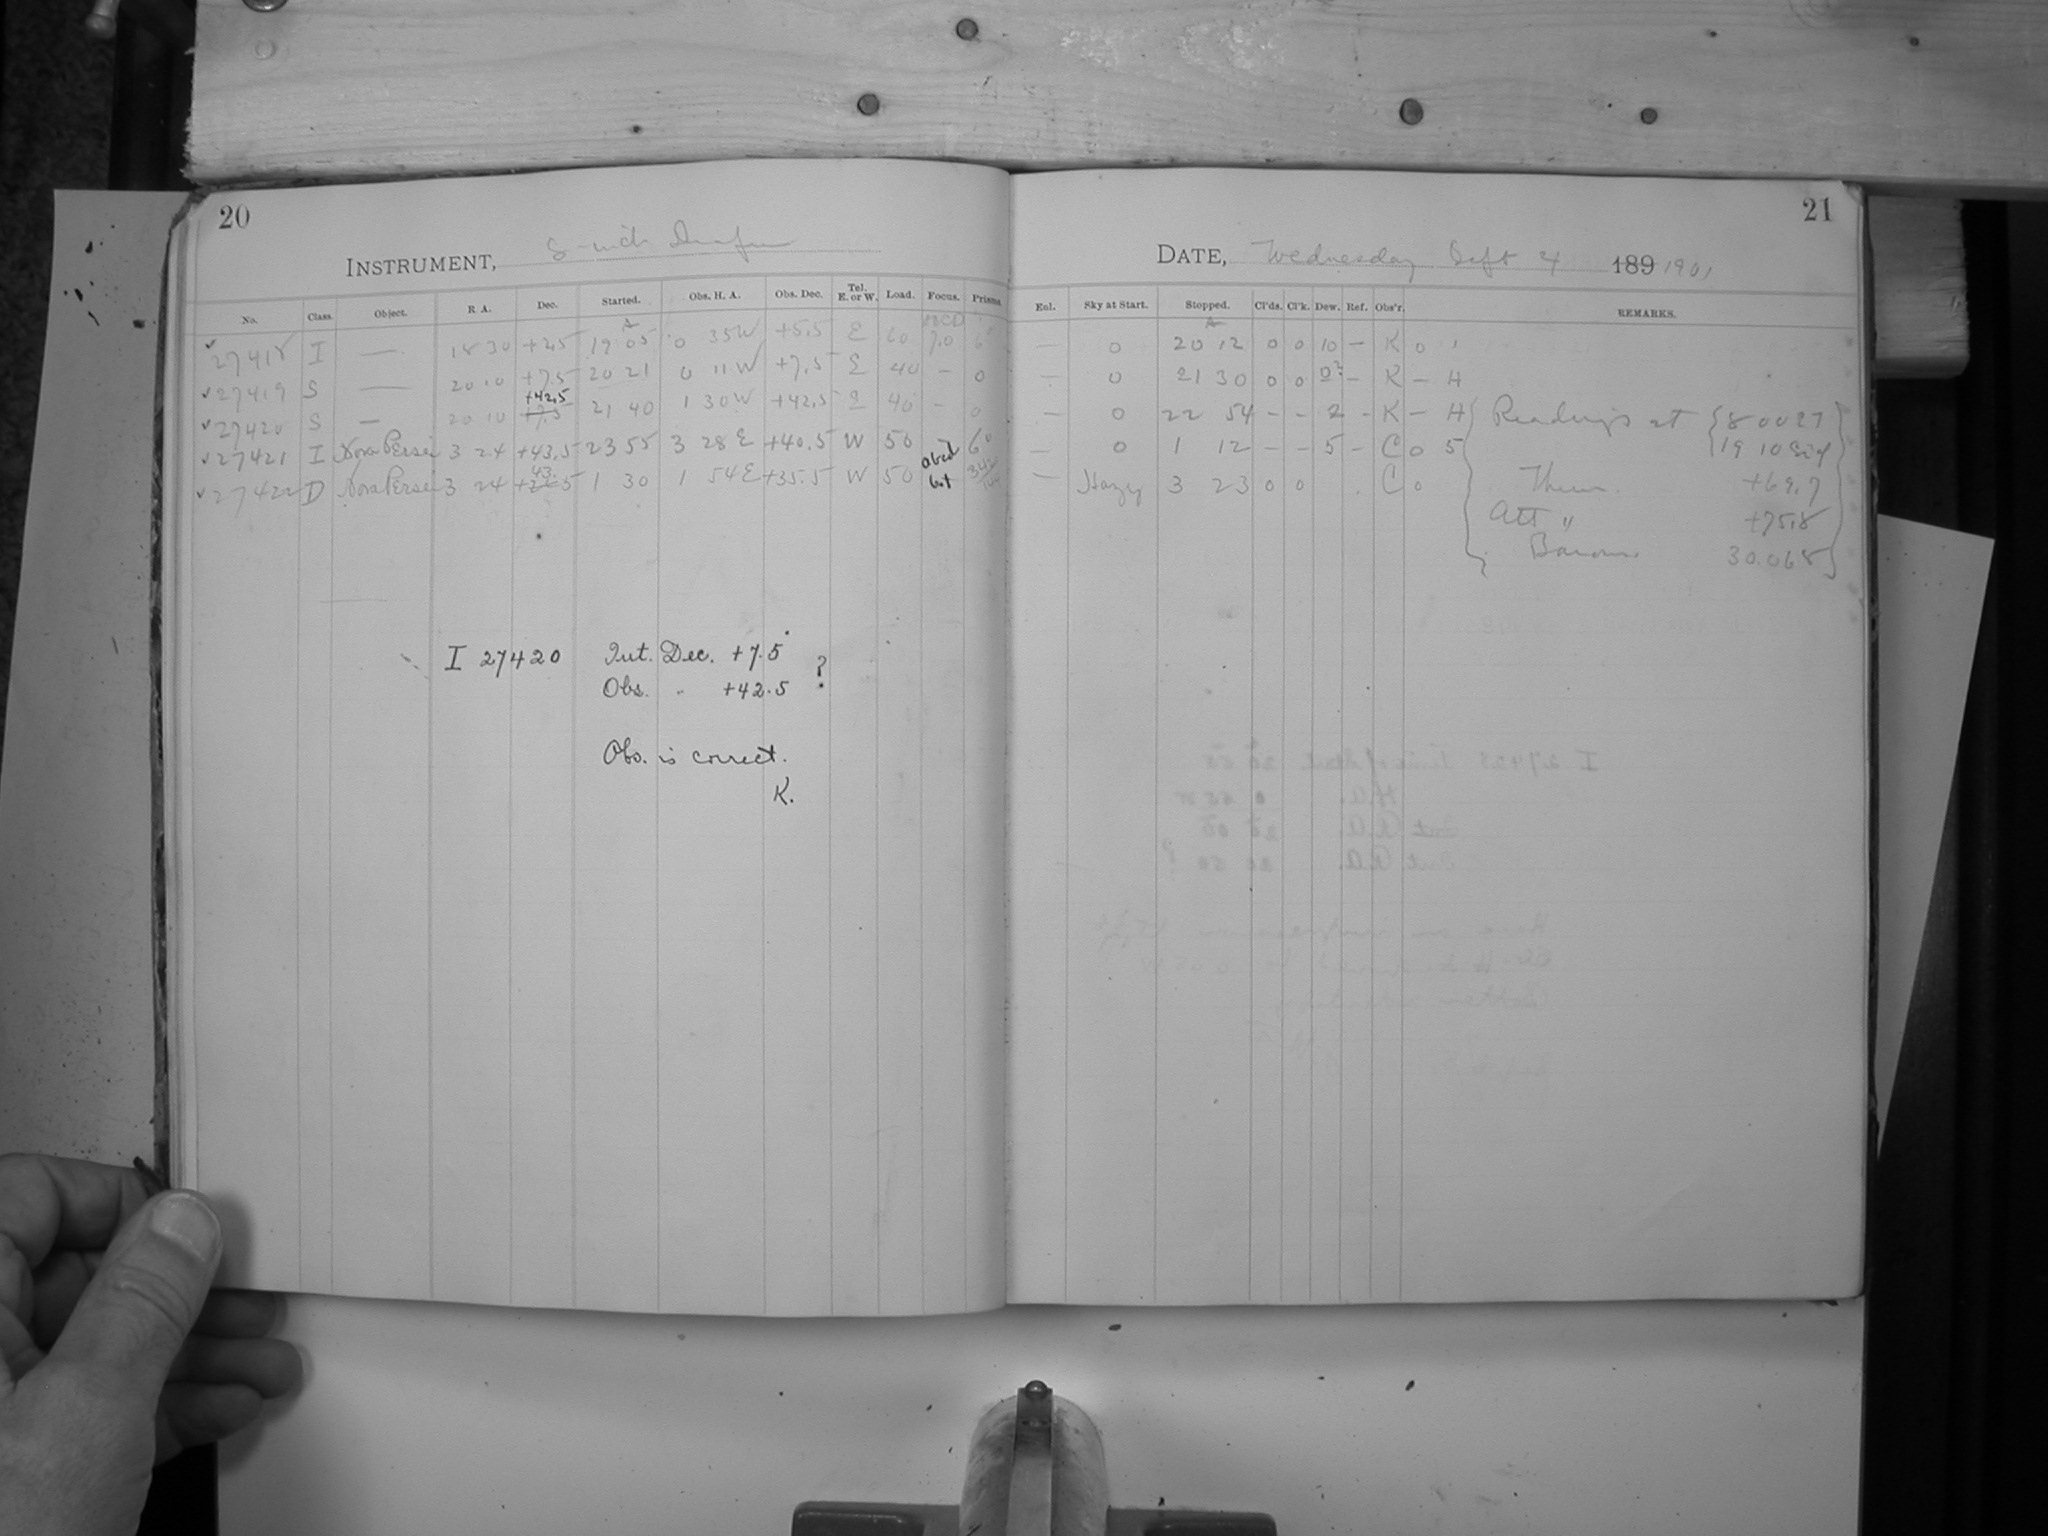 20
INSTRUMENT, 8-inch Draper
No. Class. Object. R. A. Dec. Started. Obs. H. A. Obs. Dec. Tel. E. or W. Load. Focus. Prisms.
27418 I — 18 30 +25 19 05 0 35W +5.5 E 60 7.0
27419 S — 20 10 +7.5 20 21 0 11W +7.5 E 40 – 0
+42.5
27420 S — 20 10 17.5 21 40 1 30W +42.5 E 40 – 0
27421 I Nova Persei 3 24 +43.5 23 55 3 28E +40.5 W 50 abcd 6
43.
27422 D Nova Persei 3 24 5 1 30 1 54E +35.5 W 50
I 27420 Int. Dec. +7.5
Obs. " +42.5 ?
Obs. is correct.
K.
21
DATE, Wednesday Sept 4 189 1901
Enl. Sky at Start. Stopped. Cl'ds. Cl'k. Dew. Ref. Obs'r. REMARKS.
— 0 20 12 0 0 10 – K 0 1
— 0 21 30 0 0 0? – K – H
— 0 22 54 – – 2 – K – H Readings at 8 00 27
— 0 1 12 – – 5 – C 0 5 19 10 Sid
— Hazy 3 23 0 0 C 0 Therm. +69.7
Att " +75.8
Barom. 30.068